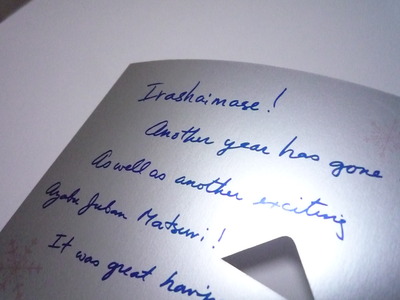 Irashaimase!
Another year has gone
As well as another exciting
Azabu Juban Matsuri!
It was great havin